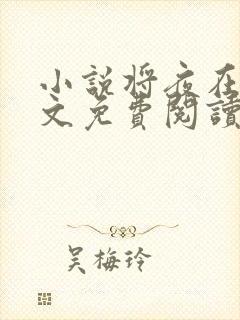 小說将夜在
文免費閱讀
吴梅玲